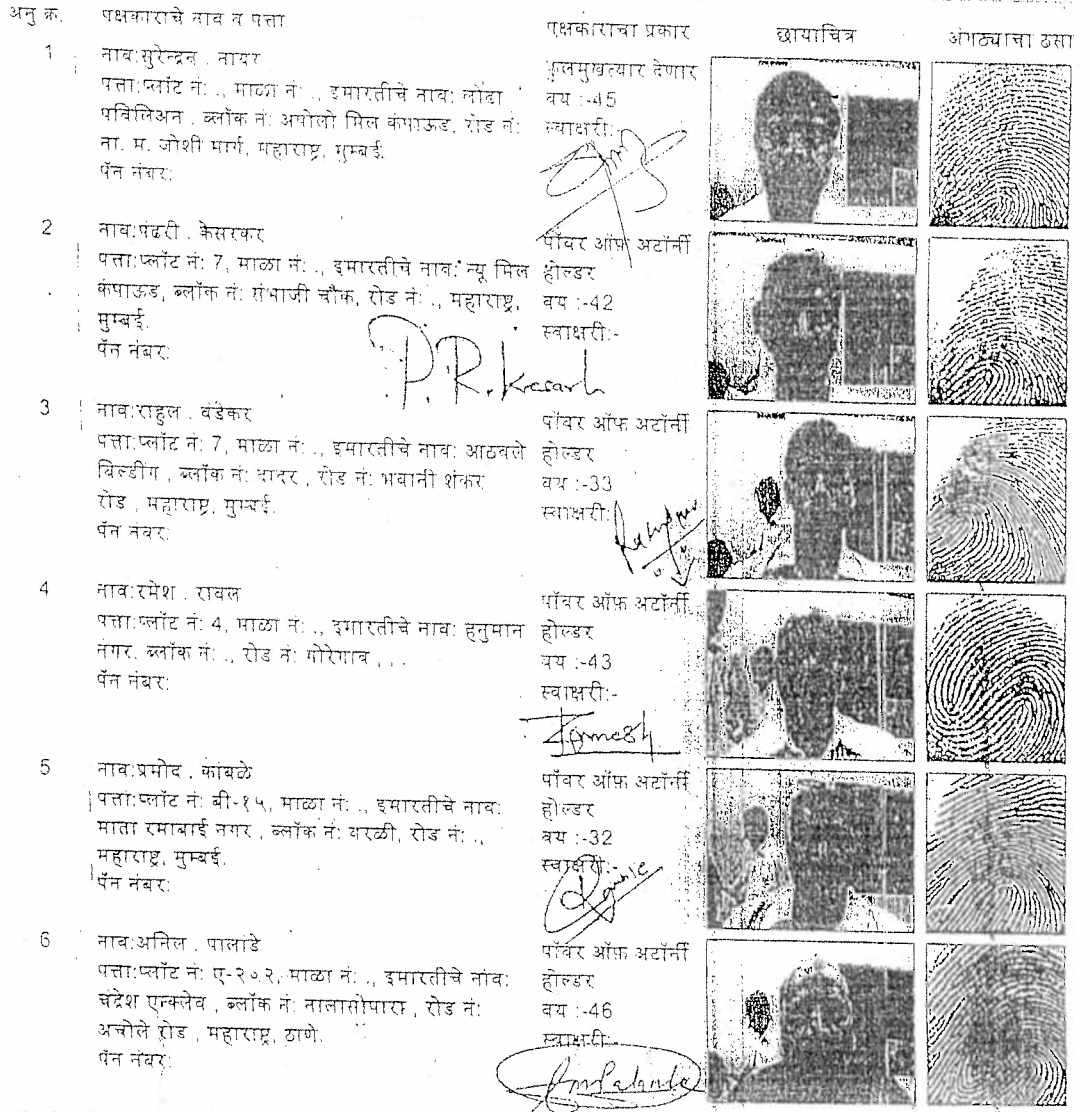 अनु क्र. पक्षकाराचे नाव व पत्ता पक्षकाराचा प्रकार छायाचित्र अंगठ्याचा ठसा
1 नाव:सुरेन्द्रन . नायर
पत्ता:प्लॉट नं: ., माळा नं: ., इमारतीचे नाव: लोढा
पविलिअन , ब्लॉक नं: अपोलो मिल कंपाऊड, रोड नं:
ना. म. जोशी मार्ग, महाराष्ट्र, मुम्बई.
पॅन नंबर:
कुलमुखत्यार देणार
वय :-45
स्वाक्षरी:-
2 नाव:पंढरी . केसरकर
पत्ता:प्लॉट नं: 7, माळा नं: ., इमारतीचे नाव: न्यू मिल
कंपाऊड, ब्लॉक नं: संभाजी चौक, रोड नं: ., महाराष्ट्र,
मुम्बई.
पॅन नंबर:
पॉवर ऑफ़ अटॉर्नी
होल्डर
वय :-42
स्वाक्षरी:-
P. R. Kesark
3 नाव:राहुल . वंडेकर
पत्ता:प्लॉट नं: 7, माळा नं: ., इमारतीचे नाव: आठवले
बिल्डींग , ब्लॉक नं: दादर , रोड नं: भवानी शंकर
रोड , महाराष्ट्र, मुम्बई.
पॅन नंबर:
पॉवर ऑफ़ अटॉर्नी
होल्डर
वय :-33
स्वाक्षरी:-
4 नाव:रमेश . रावल
पत्ता:प्लॉट नं: 4, माळा नं: ., इमारतीचे नाव: हनुमान
नगर, ब्लॉक नं: ., रोड नं: गोरेगाव , , .
पॅन नंबर:
पॉवर ऑफ़ अटॉर्नी
होल्डर
वय :-43
स्वाक्षरी:-
Ramesh
5 नाव:प्रमोद . कांबळे
पत्ता:प्लॉट नं: बी-१५, माळा नं: ., इमारतीचे नाव:
माता रमाबाई नगर , ब्लॉक नं: वरळी, रोड नं: .,
महाराष्ट्र, मुम्बई.
पॅन नंबर:
पॉवर ऑफ़ अटॉर्नी
होल्डर
वय :-32
स्वाक्षरी:-
6 नाव:अनिल . पालांडे
पत्ता:प्लॉट नं: ए-२०२, माळा नं: ., इमारतीचे नाव:
चंद्रेश एन्क्लेव , ब्लॉक नं: नालासोपारा , रोड नं:
अचोले रोड , महाराष्ट्र, ठाणे.
पॅन नंबर:
पॉवर ऑफ़ अटॉर्नी
होल्डर
वय :-46
स्वाक्षरी:-